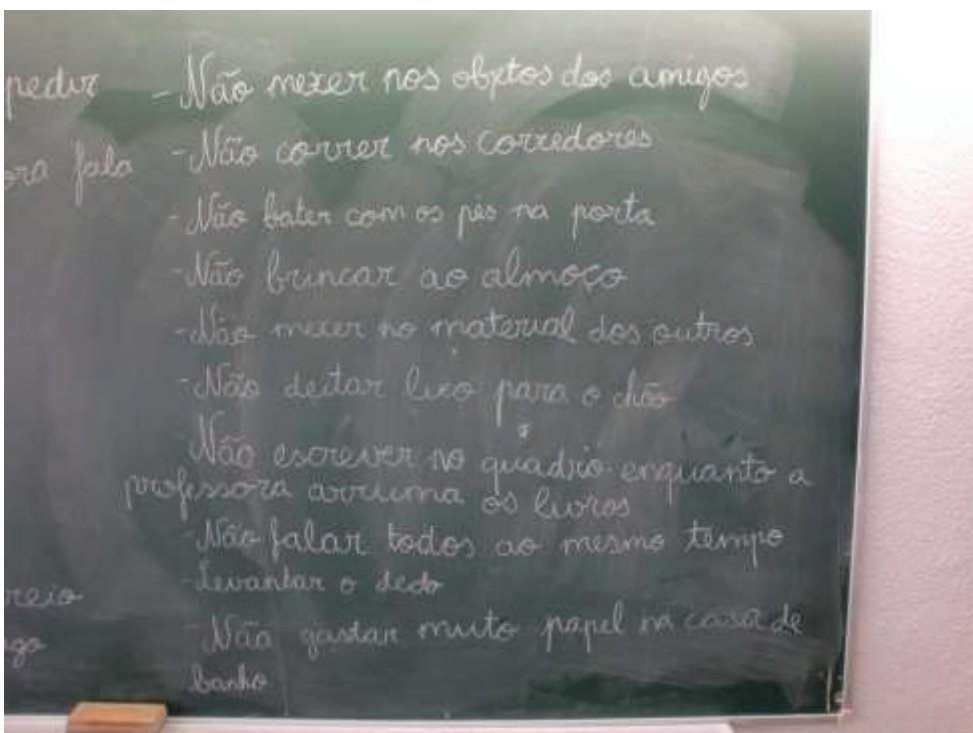 pedir
- Não mexer nos objetos dos amigos
ora fala
- Não correr nos corredores
- Não bater com os pés na porta
- Não brincar ao almoço
- Não mexer no material dos outros
- Não deitar lixo para o chão
- Não escrever no quadro enquanto a
professora arruma os livros
- Não falar todos ao mesmo tempo
- Levantar o dedo
reio
- Não gastar muito papel na casa de
igo
banho